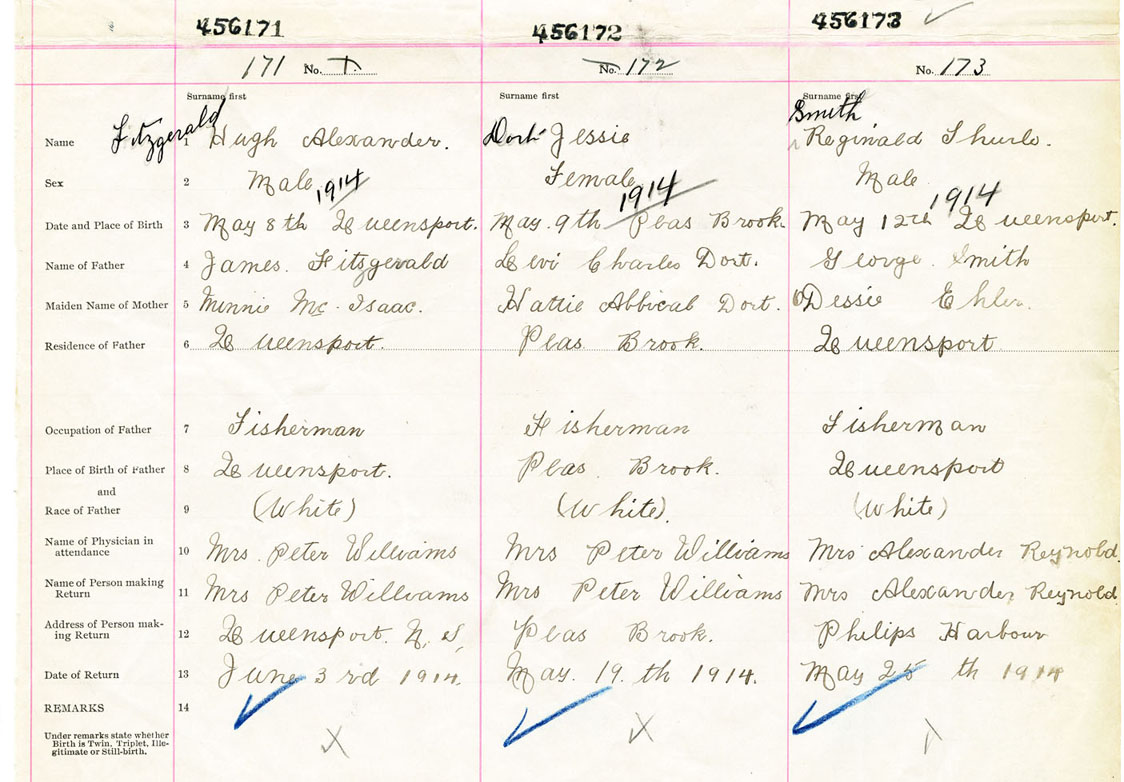 456171 456172 456173
171 No. 1. No. 172 No. 173
Surname first Surname first Surname first
Fitzgerald Dort Smith
Name 1 Hugh Alexander. Jessie Reginald
Sex 2 Male Female Male
1914 1914 1914
Date and Place of Birth 3 May 8th Queensport. May. 9th Peas Brook. May 12th Queensport.
Name of Father 4 James. Fitzgerald Levi Charles Dort. George. Smith
Maiden Name of Mother 5 Minnie Mc. Isaac. Hattie Abbical Dort. Dessie
Residence of Father 6 Queensport. Peas Brook. Queensport
Occupation of Father 7 Fisherman Fisherman Fisherman
Place of Birth of Father 8 Queensport. Peas Brook. Queensport
and
Race of Father 9 (White) (White). (White)
Name of Physician in
attendance 10 Mrs. Peter Williams Mrs Peter Williams Mrs Alexander Reynold
Name of Person making
Return 11 Mrs Peter Williams Mrs Peter Williams Mrs Alexander Reynold
Address of Person mak-
ing Return 12 Queensport. N. S. Peas Brook. Philips Harbour
Date of Return 13 June 3rd 1914. May. 19.th 1914. May 25 th 1914
REMARKS 14
Under remarks state whether X X
Birth is Twin, Triplet, Ille-
gitimate or Still-birth.